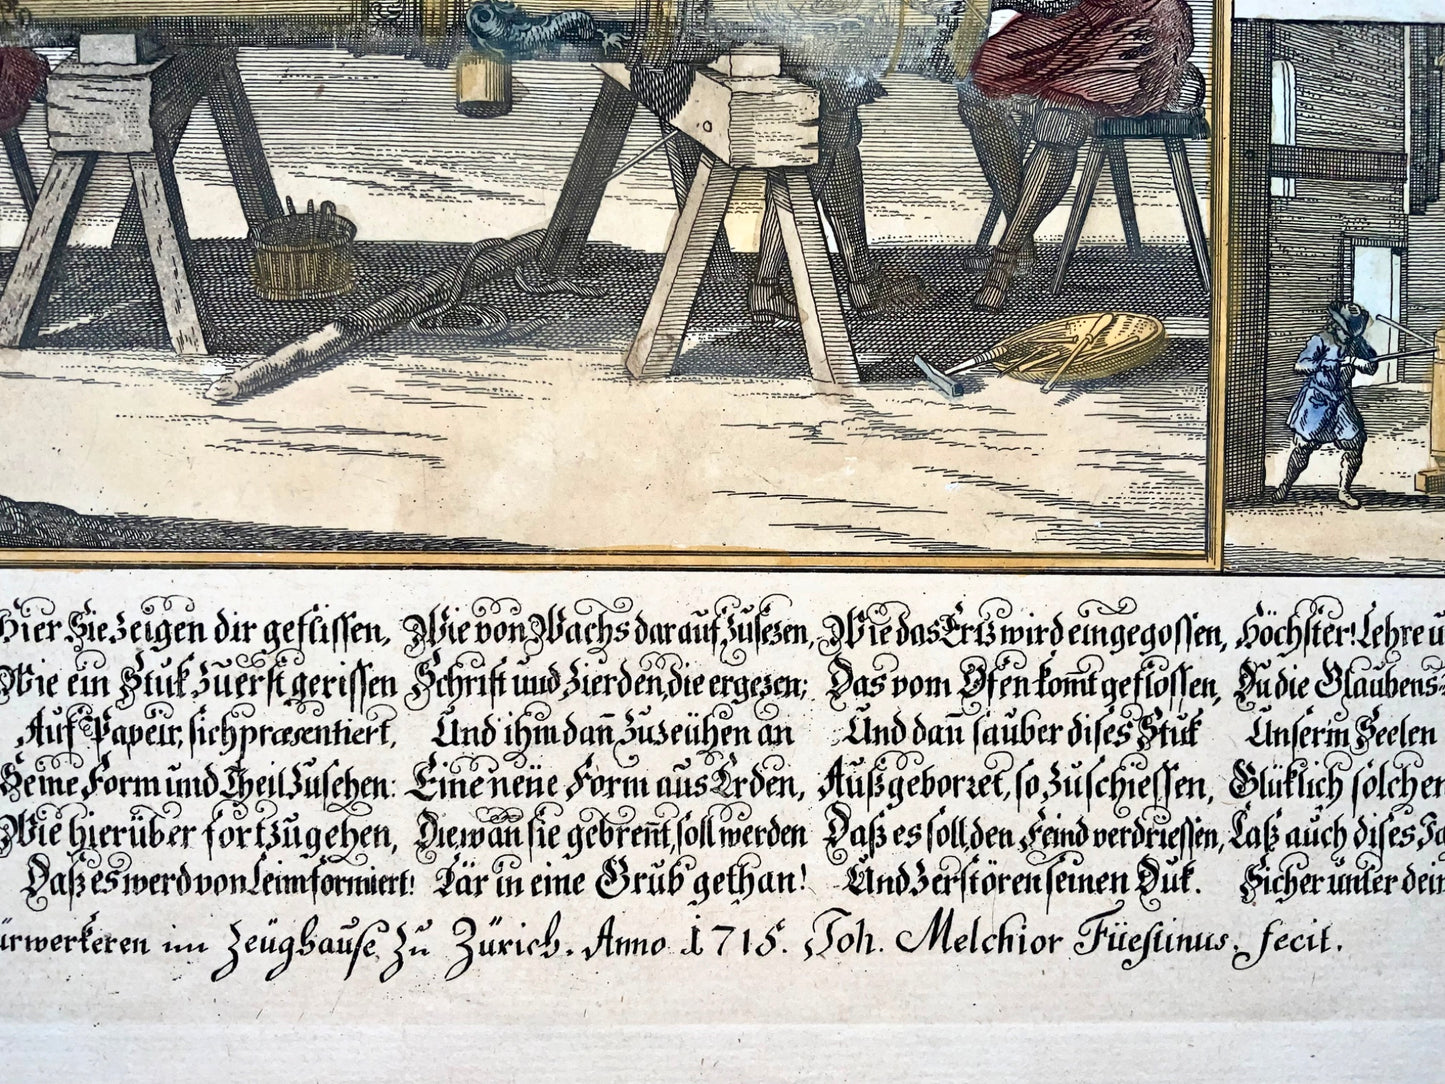 Hier Sie Zeigen dir geflissen,
Wie ein Stuk Zuerst gerissen
Auf Papeir, sich præsentiert,
Seine Form und Theil Zusehen:
Wie hierüber fortzugehen,
Daß es werd von Leim formiert!
Wie von Wachs darauf Zusezen,
Schrift und Zierden, die ergezen;
Und ihm dañ Zuzeühen an
Eine neüe Form aus Erden,
Die, wañ sie gebreñt, soll werden
Tär in eine Grub gethan!
Wie das Ertz wird eingegossen,
Das vom Ofen kom̃t geflossen,
Und dañ sauber dises Stuk
Außgeborzet, so Zuschiessen,
Daß es soll, den Feind verdriessen,
Und Zerstören seinen Duk.
Höchster! Lehre
Du die Glaubens-
Unserin Seelen
Glüklich solchen
Laß auch dises
Sicher unter
im Zeüghause Zu Zürich. Anno 1715. Joh. Melchior Füeslinus. fecit.